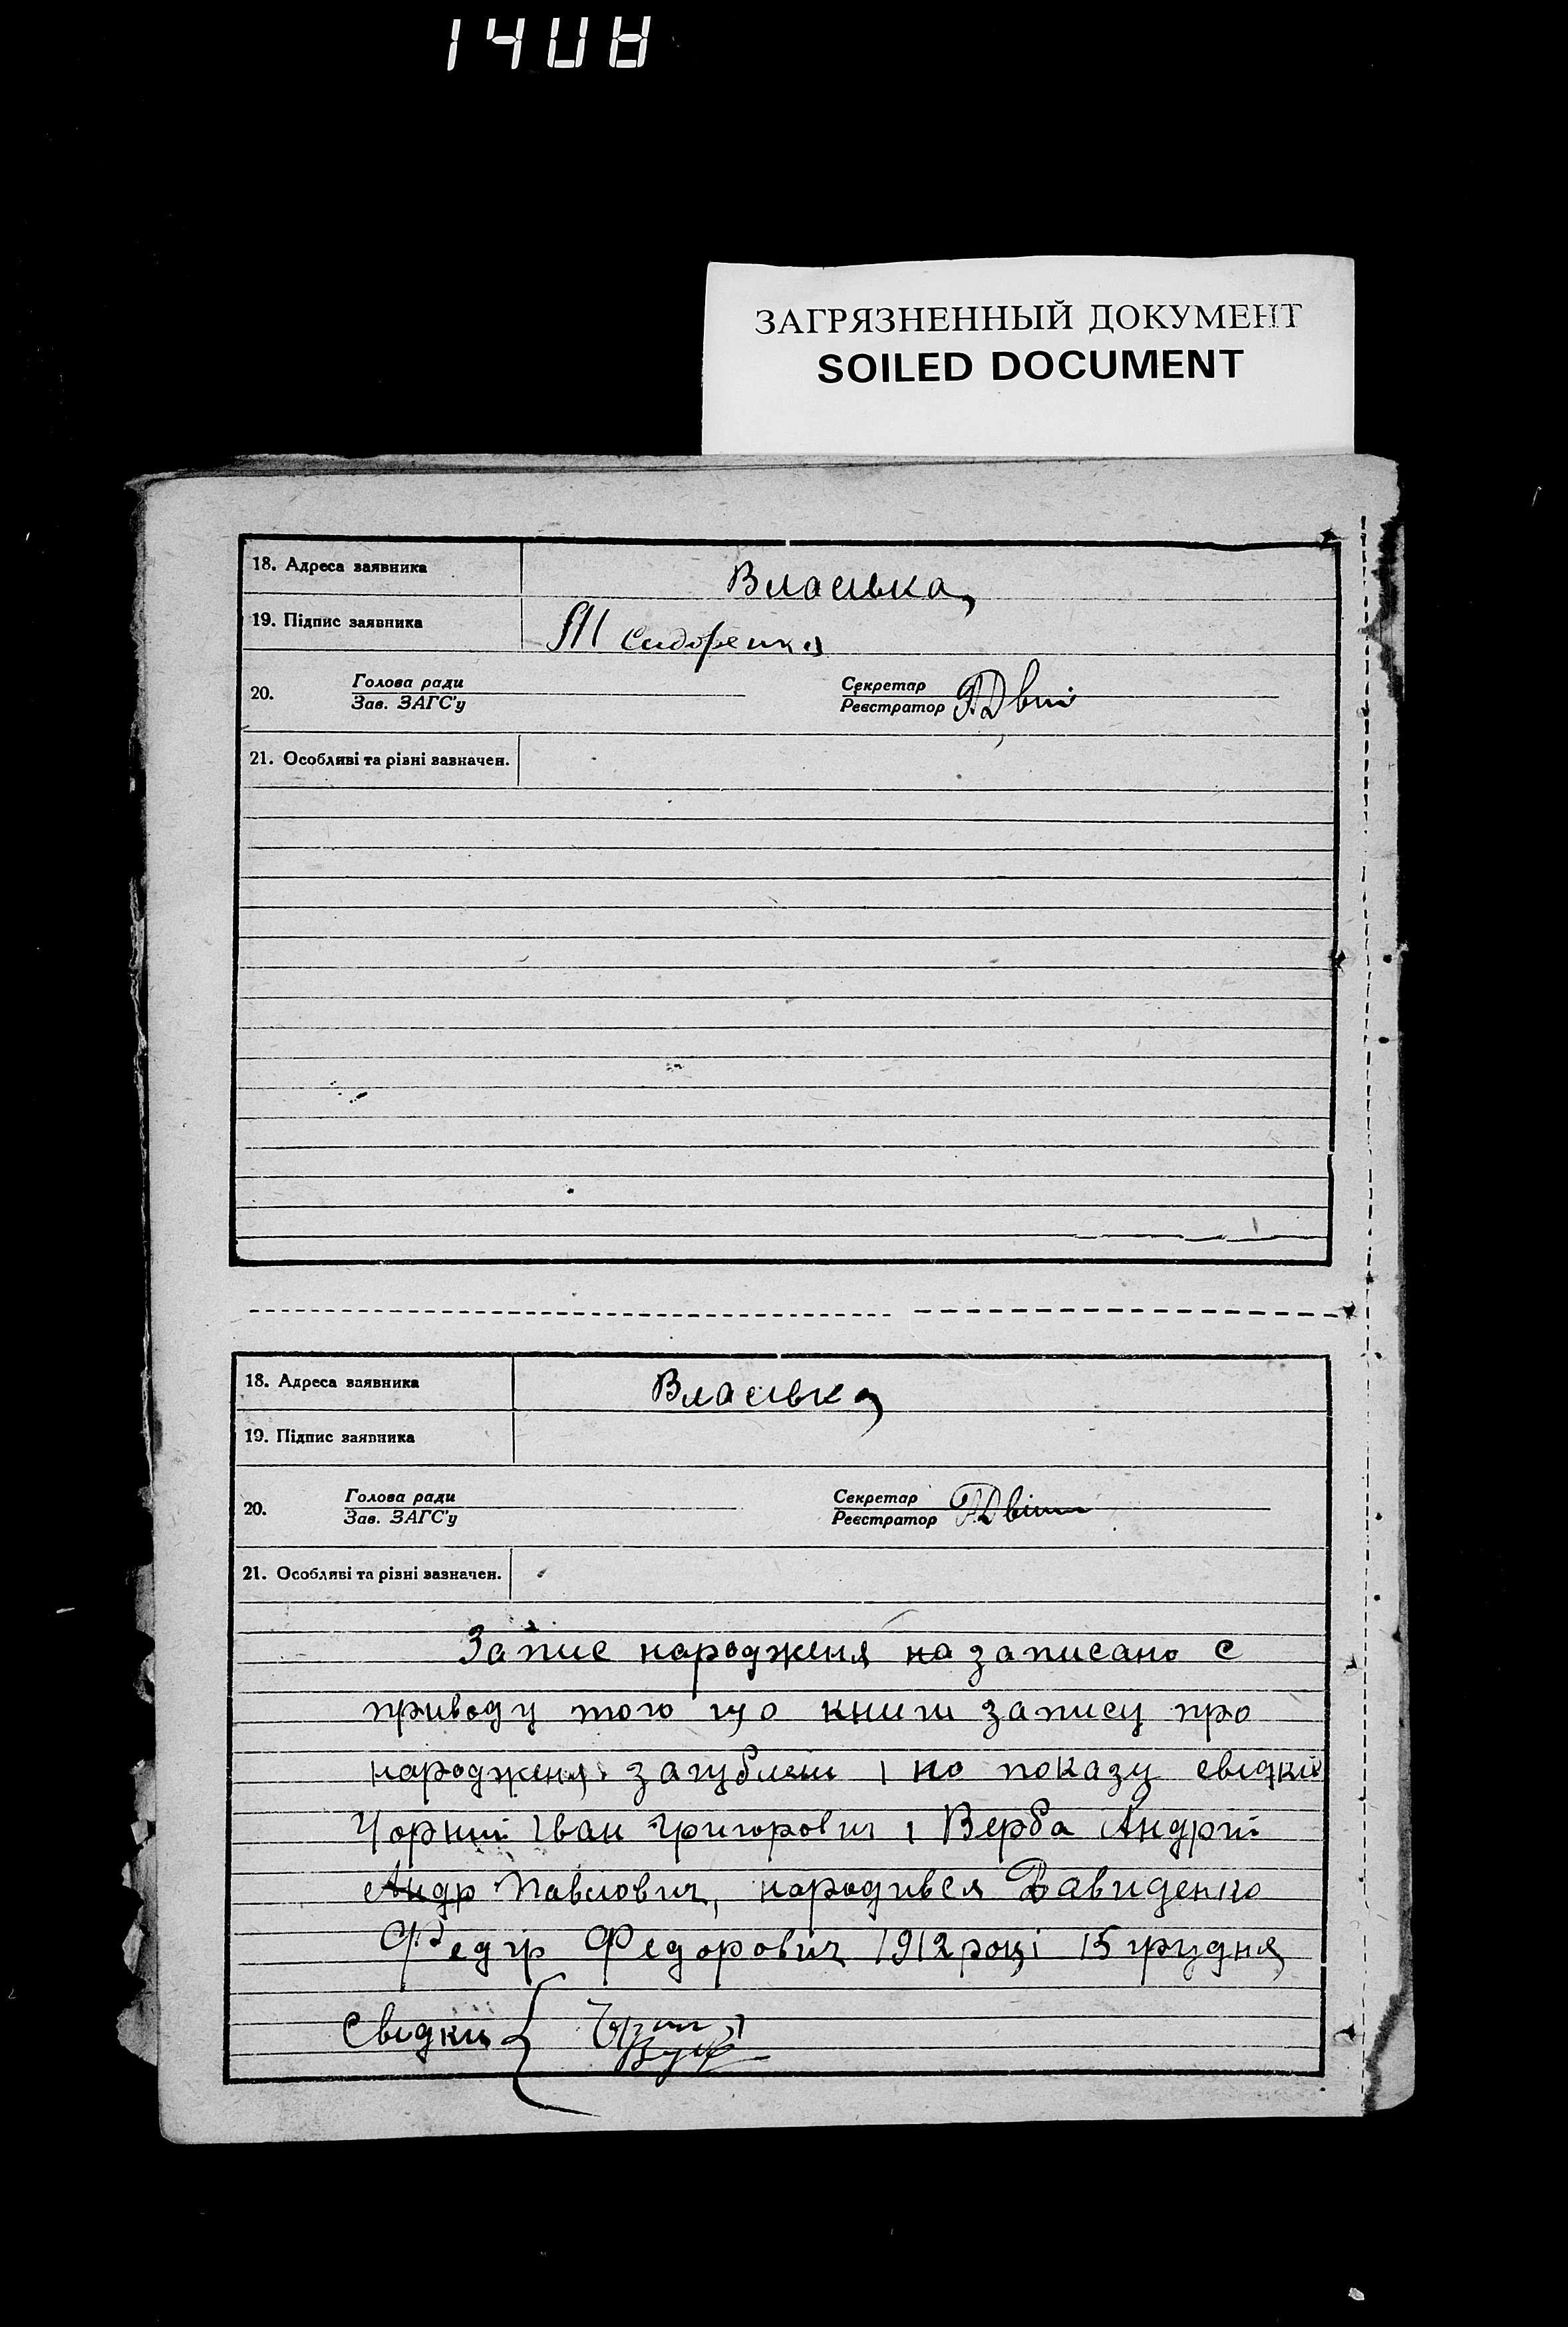 ЗАГРЯЗНЕННЫЙ ДОКУМЕНТ
SOILED DOCUMENT
18. Адреса заявника Власівка
19. Підпис заявника Сидоренко
20. Голова ради
Зав. ЗАГС'у
Секретар
Реєстратор
21. Особливі та різні зазначен.
18. Адреса заявника Власівка
19. Підпис заявника
20. Голова ради
Зав. ЗАГС'у
Секретар
Реєстратор
21. Особливі та різні зазначен.
Запис народженя на записано с
приводу того що книги запису про
народженя загублені і по показу свідків
Чорний Іван Григорович і Верба Андрій
Андр Павлович, народився Давиденко
Федір Федорович 1912 році 15 грудня
Свідки